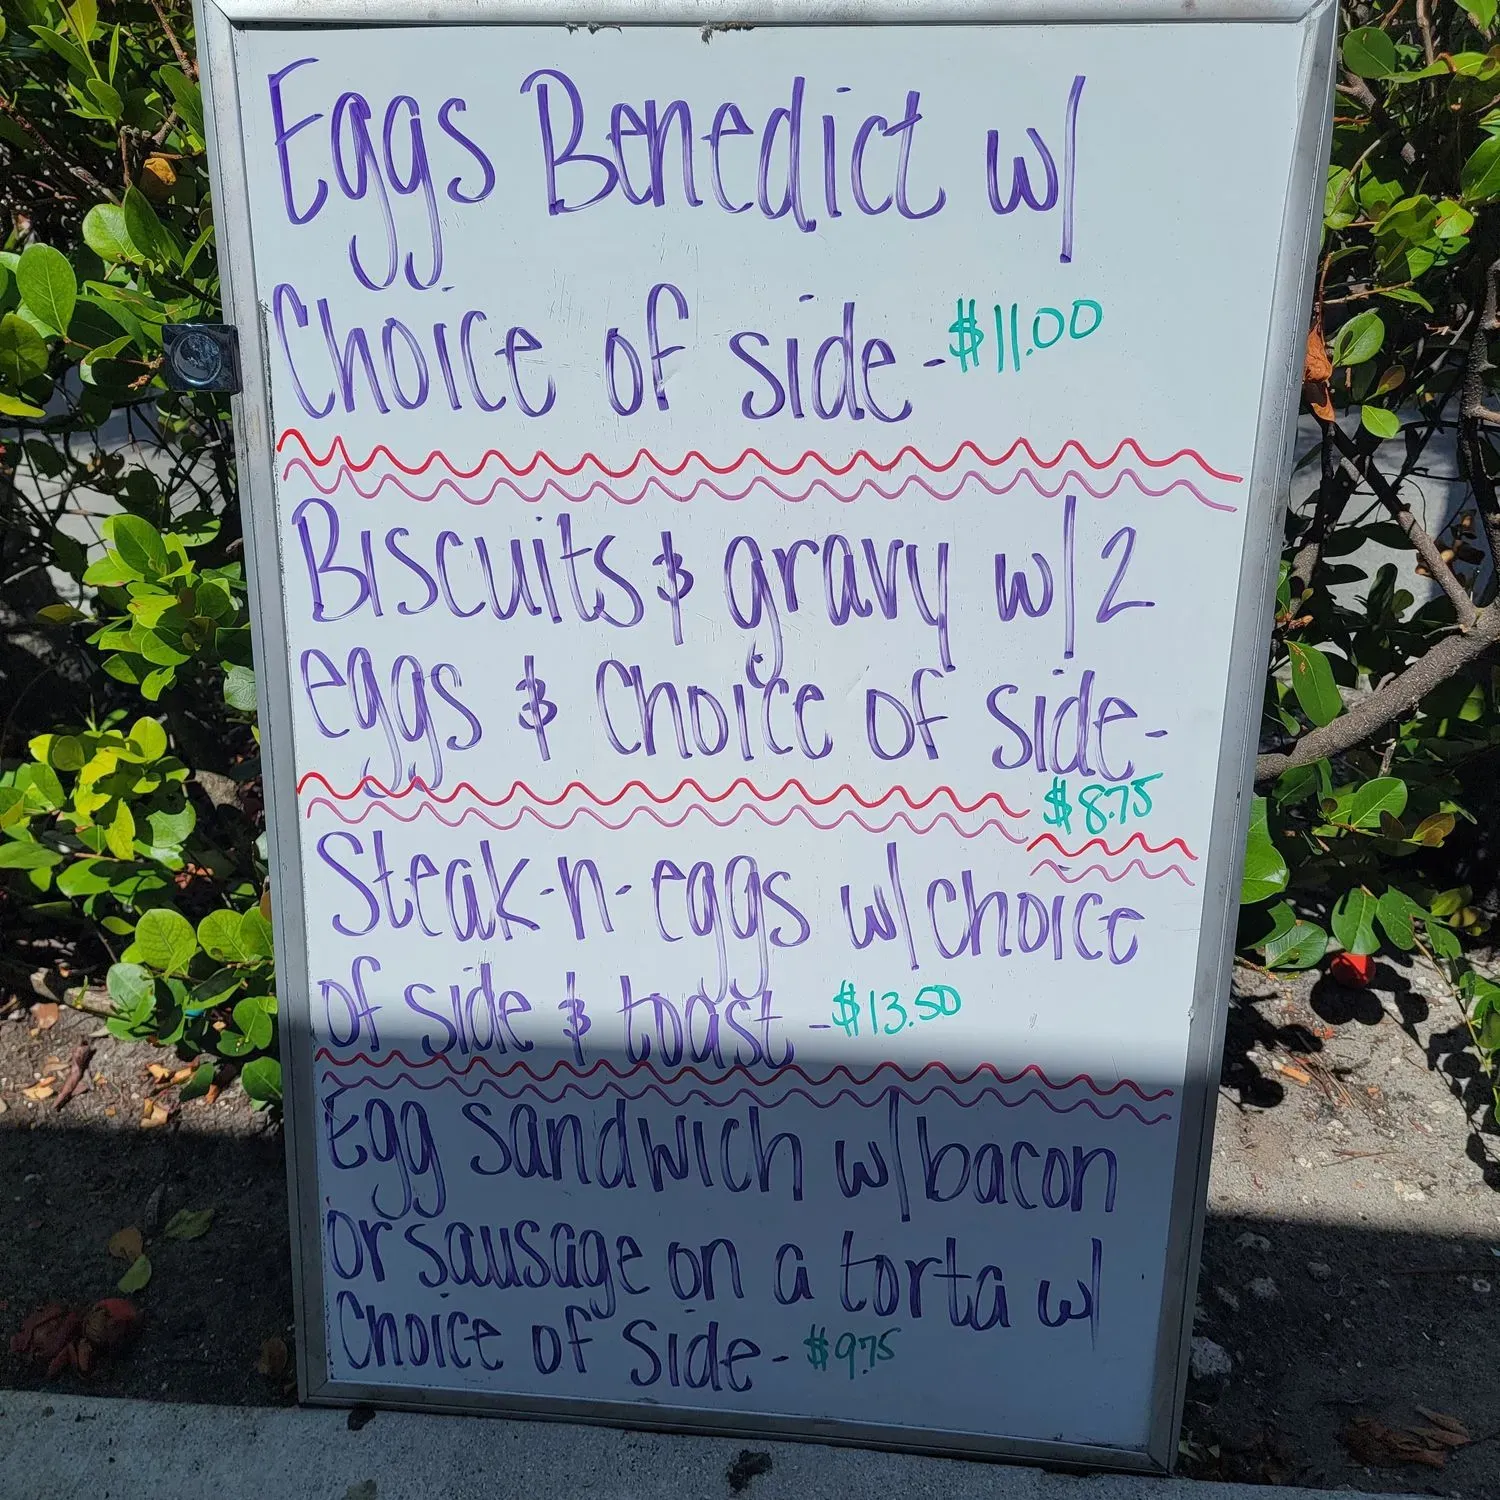 Eggs Benedict w/
Choice of side - $11.00
Biscuits & gravy w/ 2
eggs & Choice of side -
$8.75
Steak-n-eggs w/ choice
of side & toast - $13.50
Egg sandwich w/ bacon
or sausage on a torta w/
Choice of side - $9.75